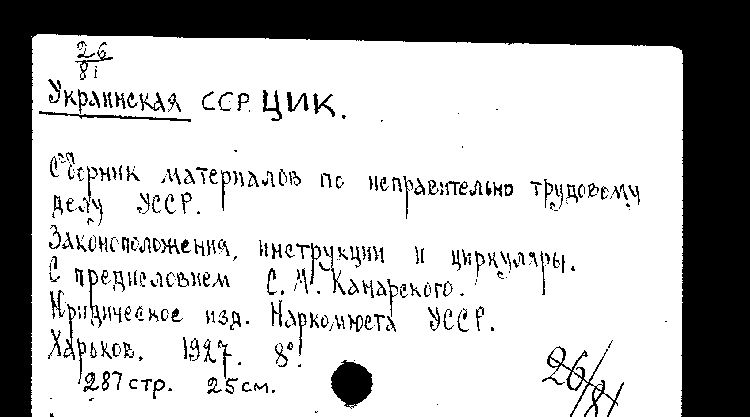 26
81
Украинская ССР. ЦИК.
Сборник материалов по исправительно трудовому
делу УССР.
Законоположения, инструкции и циркуляры.
С предисловием С. М. Канарского.
Юридическое изд. Наркомюста УССР.
Харьков. 1927. 8°.
287 стр. 25 см.
26/81